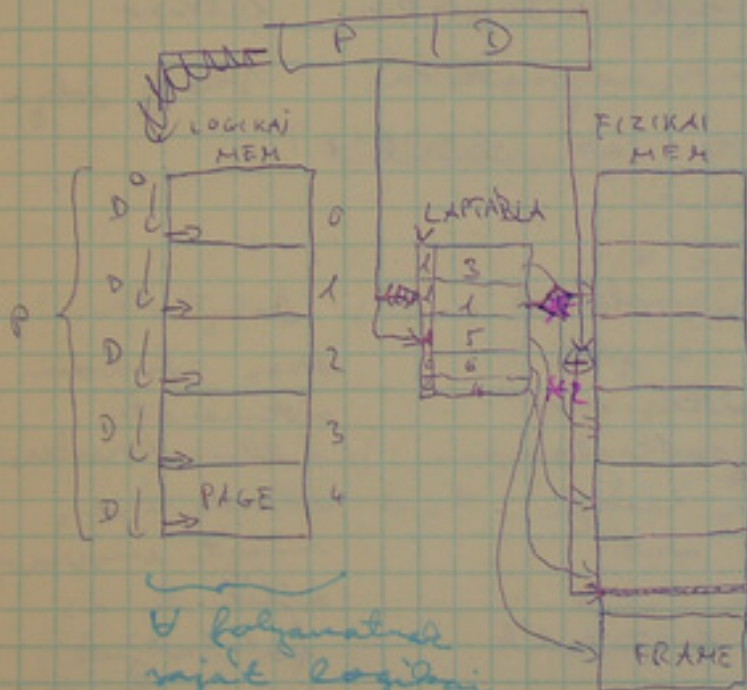 P | D
LOGIKAI
MEM
FIZIKAI
MEM
LAPTÁBLA
V
D 0
0
D
1
D
2
D
3
D
PAGE
4
P
1 3
1 1
1 5
6
4
FRAME
∀ folyamatnak
saját logikai